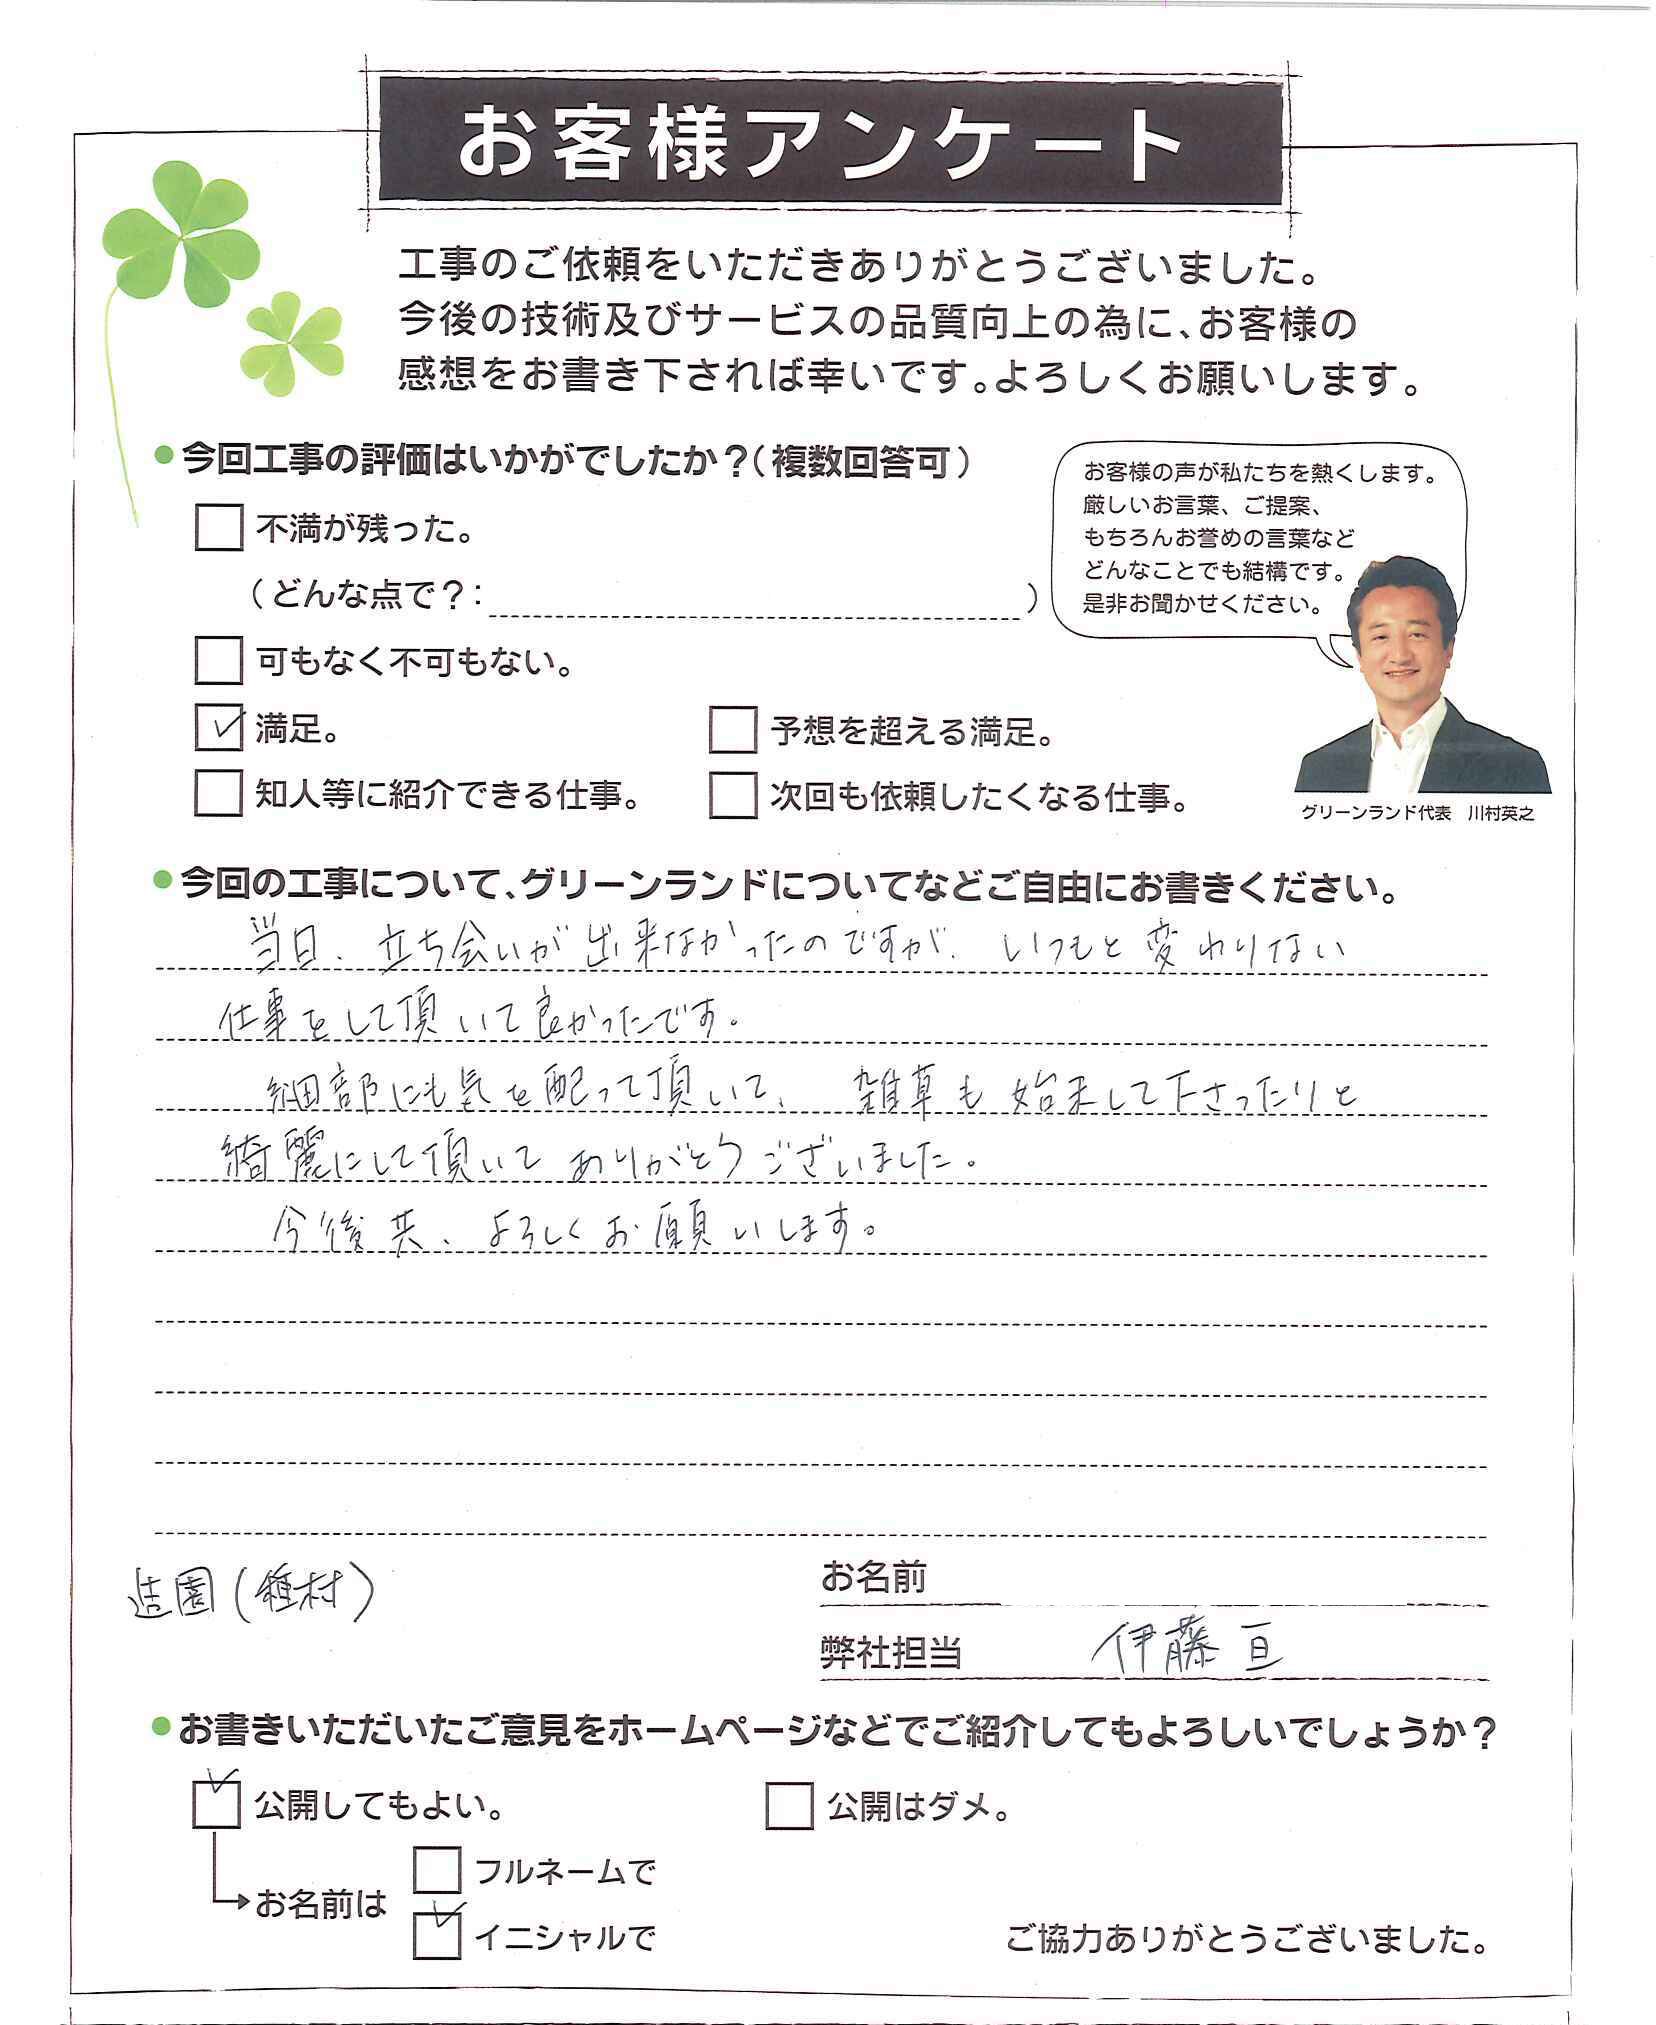 お客様アンケート
工事のご依頼をいただきありがとうございました。
今後の技術及びサービスの品質向上の為に、お客様の
感想をお書き下されば幸いです。よろしくお願いします。
●今回工事の評価はいかがでしたか？（複数回答可）
お客様の声が私たちを熱くします。
厳しいお言葉、ご提案、
もちろんお誉めの言葉など
どんなことでも結構です。
是非お聞かせください。
グリーンランド代表　川村英之
不満が残った。
（どんな点で？：　　　　　）
可もなく不可もない。
満足。
予想を超える満足。
知人等に紹介できる仕事。
次回も依頼したくなる仕事。
●今回の工事について、グリーンランドについてなどご自由にお書きください。
当日、立ち会いが出来なかったのですが、いつもと変わりない
仕事をして頂いて良かったです。
細部にも気を配って頂いて、雑草も始末して下さったりと
綺麗にして頂いてありがとうございました。
今後共、よろしくお願いします。
造園（種村）
お名前
弊社担当　伊藤 亘
●お書きいただいたご意見をホームページなどでご紹介してもよろしいでしょうか？
公開してもよい。
公開はダメ。
お名前は
フルネームで
イニシャルで
ご協力ありがとうございました。